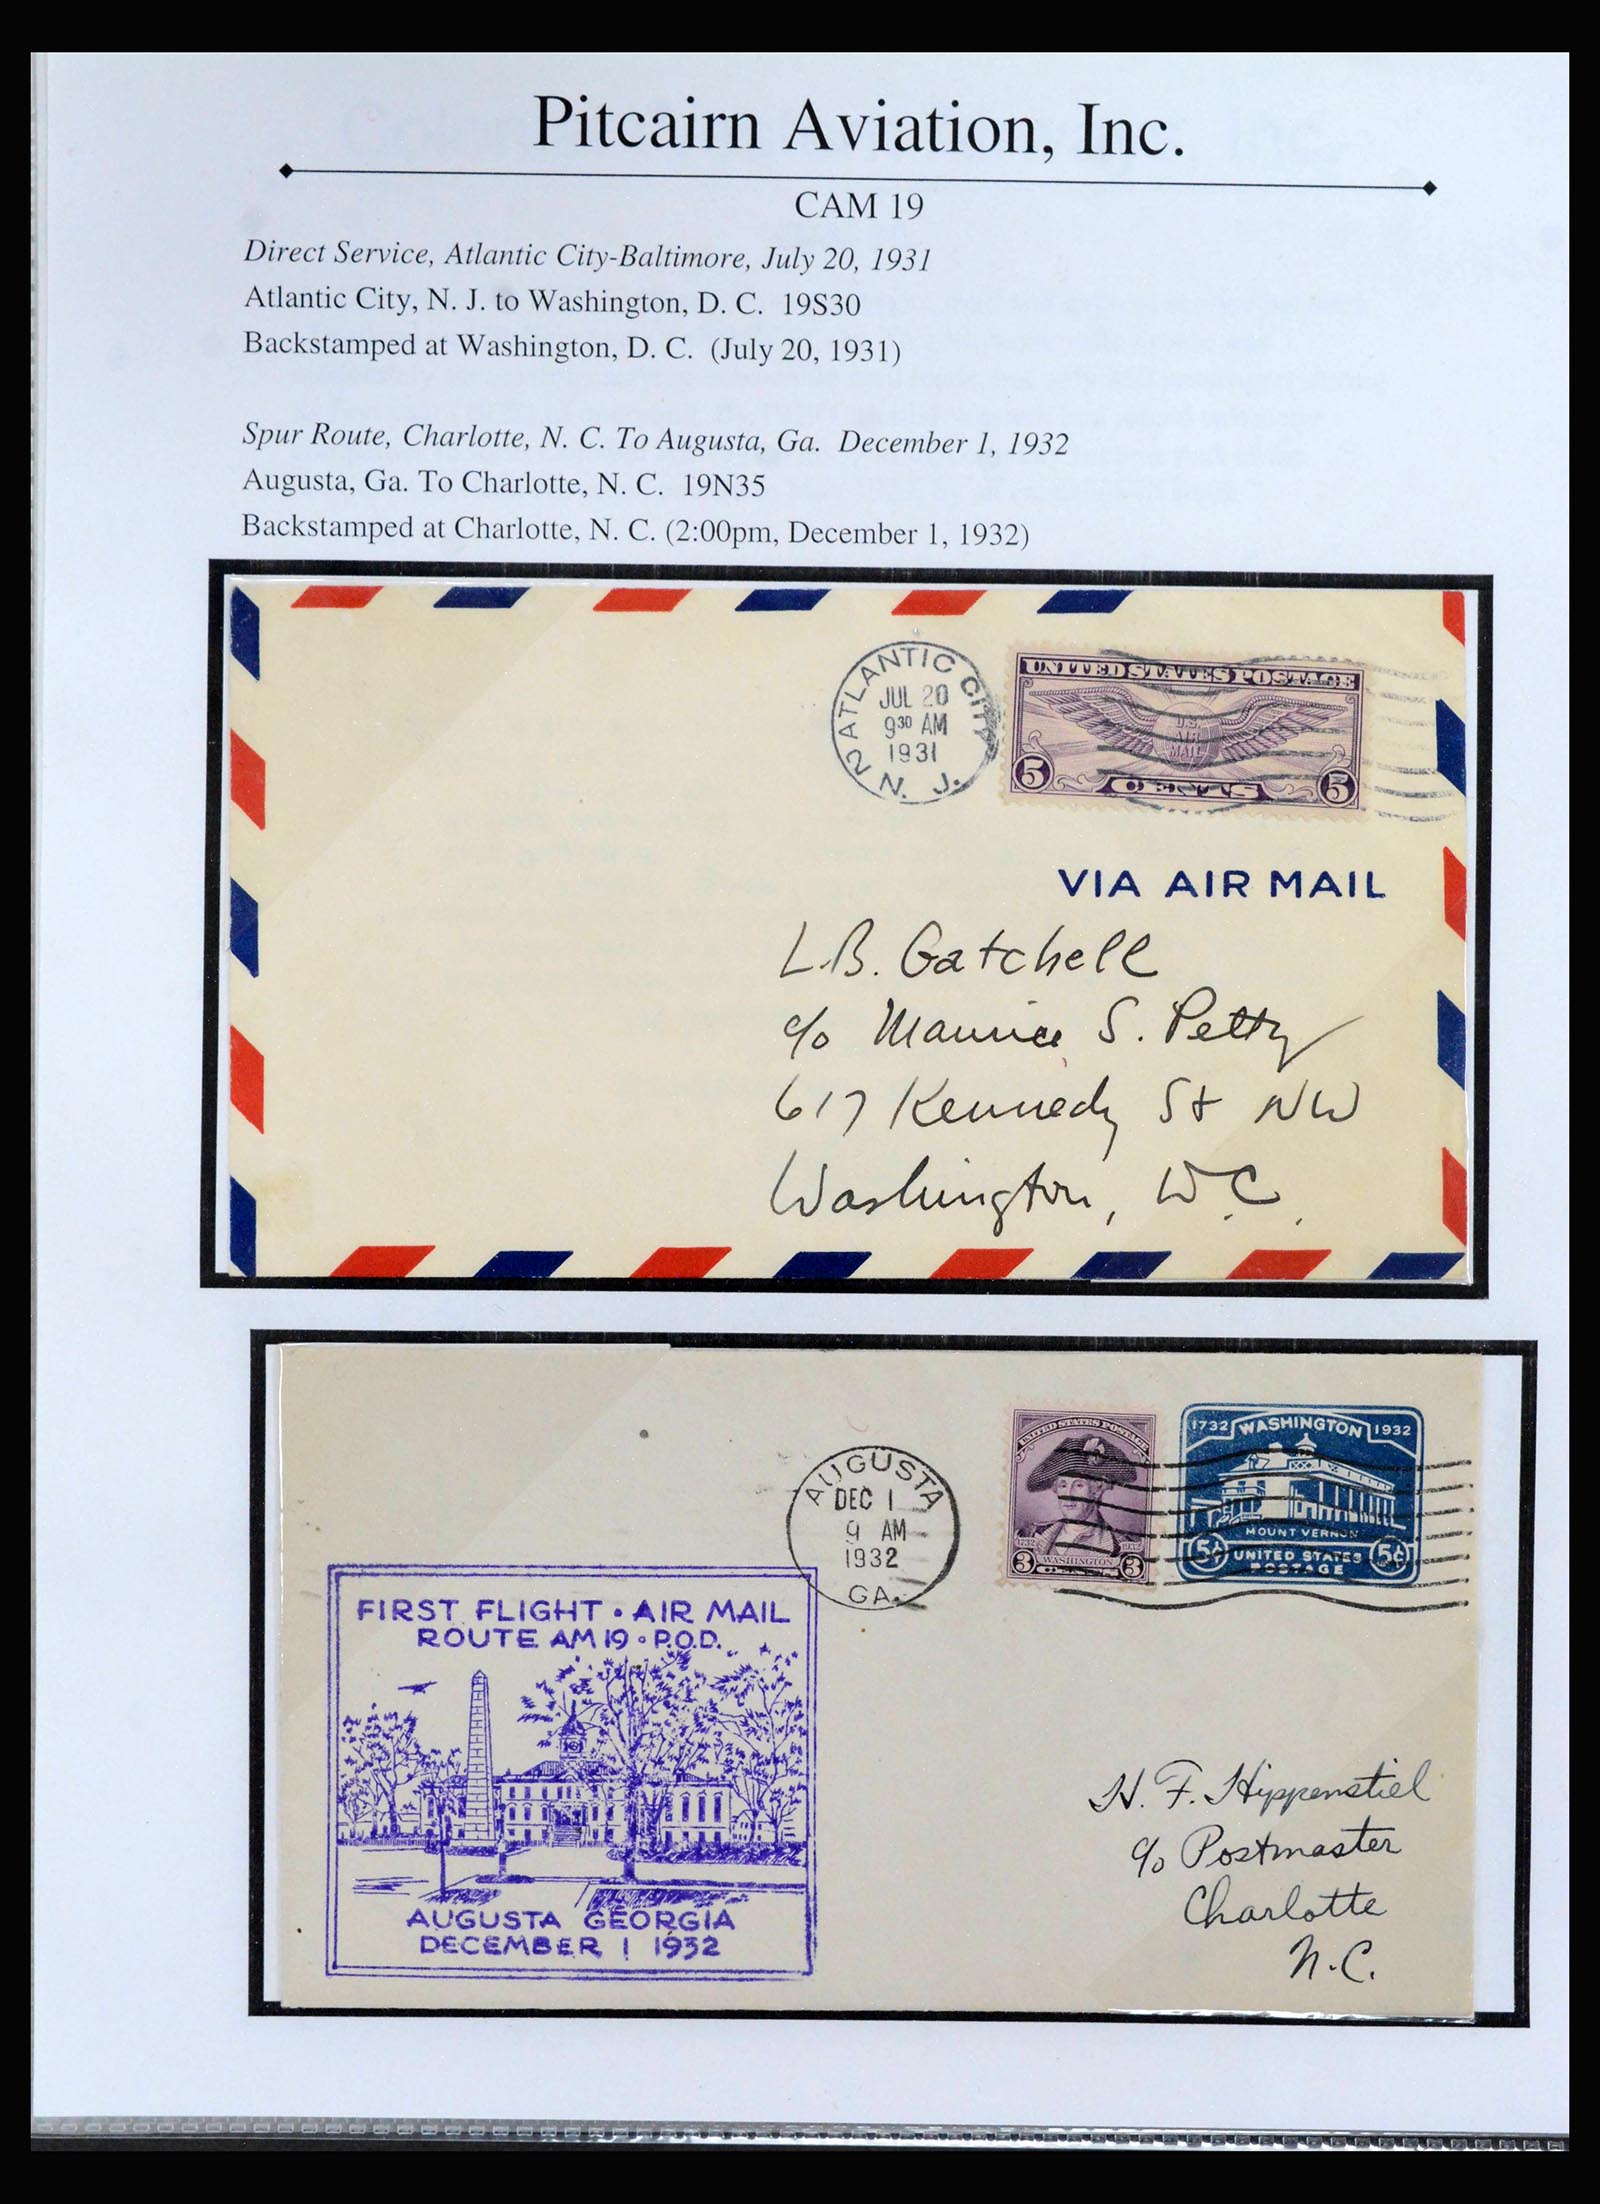 Pitcairn Aviation, Inc.
CAM 19
Direct Service, Atlantic City-Baltimore, July 20, 1931
Atlantic City, N. J. to Washington, D. C. 19S30
Backstamped at Washington, D. C. (July 20, 1931)
Spur Route, Charlotte, N. C. To Augusta, Ga. December 1, 1932
Augusta, Ga. To Charlotte, N. C. 19N35
Backstamped at Charlotte, N. C. (2:00pm, December 1, 1932)
2 ATLANTIC CITY
JUL 20
9 30 AM
1931
N. J.
UNITED STATES POSTAGE
U.S.
AIR
MAIL
5 CENTS 5
VIA AIR MAIL
L.B. Gatchell
c/o Maurice S. Petty
617 Kennedy St NW
Washington, D.C.
AUGUSTA
DEC 1
9 AM
1932
GA.
UNITED STATES POSTAGE
1732 WASHINGTON 1932
3 CENTS 3
1732 WASHINGTON 1932
MOUNT VERNON
5¢ UNITED STATES 5¢
POSTAGE
FIRST FLIGHT • AIR MAIL
ROUTE AM 19 • P.O.D.
AUGUSTA GEORGIA
DECEMBER 1 1932
H. F. Hippenstiel
c/o Postmaster
Charlotte
N.C.